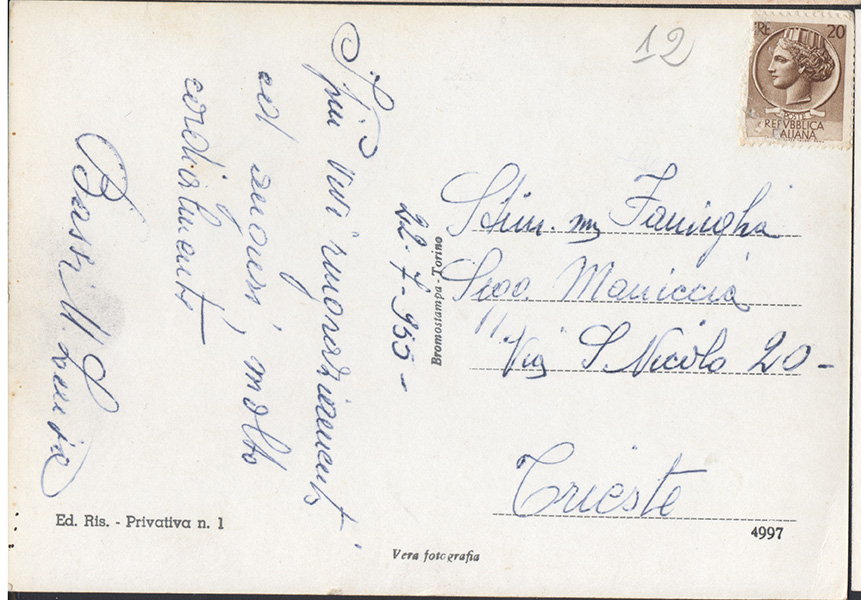 I più vivi ringraziamenti
ed auguri, molto
cordialmente
Bassi M. Luisa
22-7-955-
Bromostampa - Torino
12
RE 20
POSTE
REPVBBLICA
ITALIANA
Stim. Famiglia
Maniccia
Via S. Nicolo 20-
Trieste
Ed. Ris. - Privativa n. 1
4997
Vera fotografia